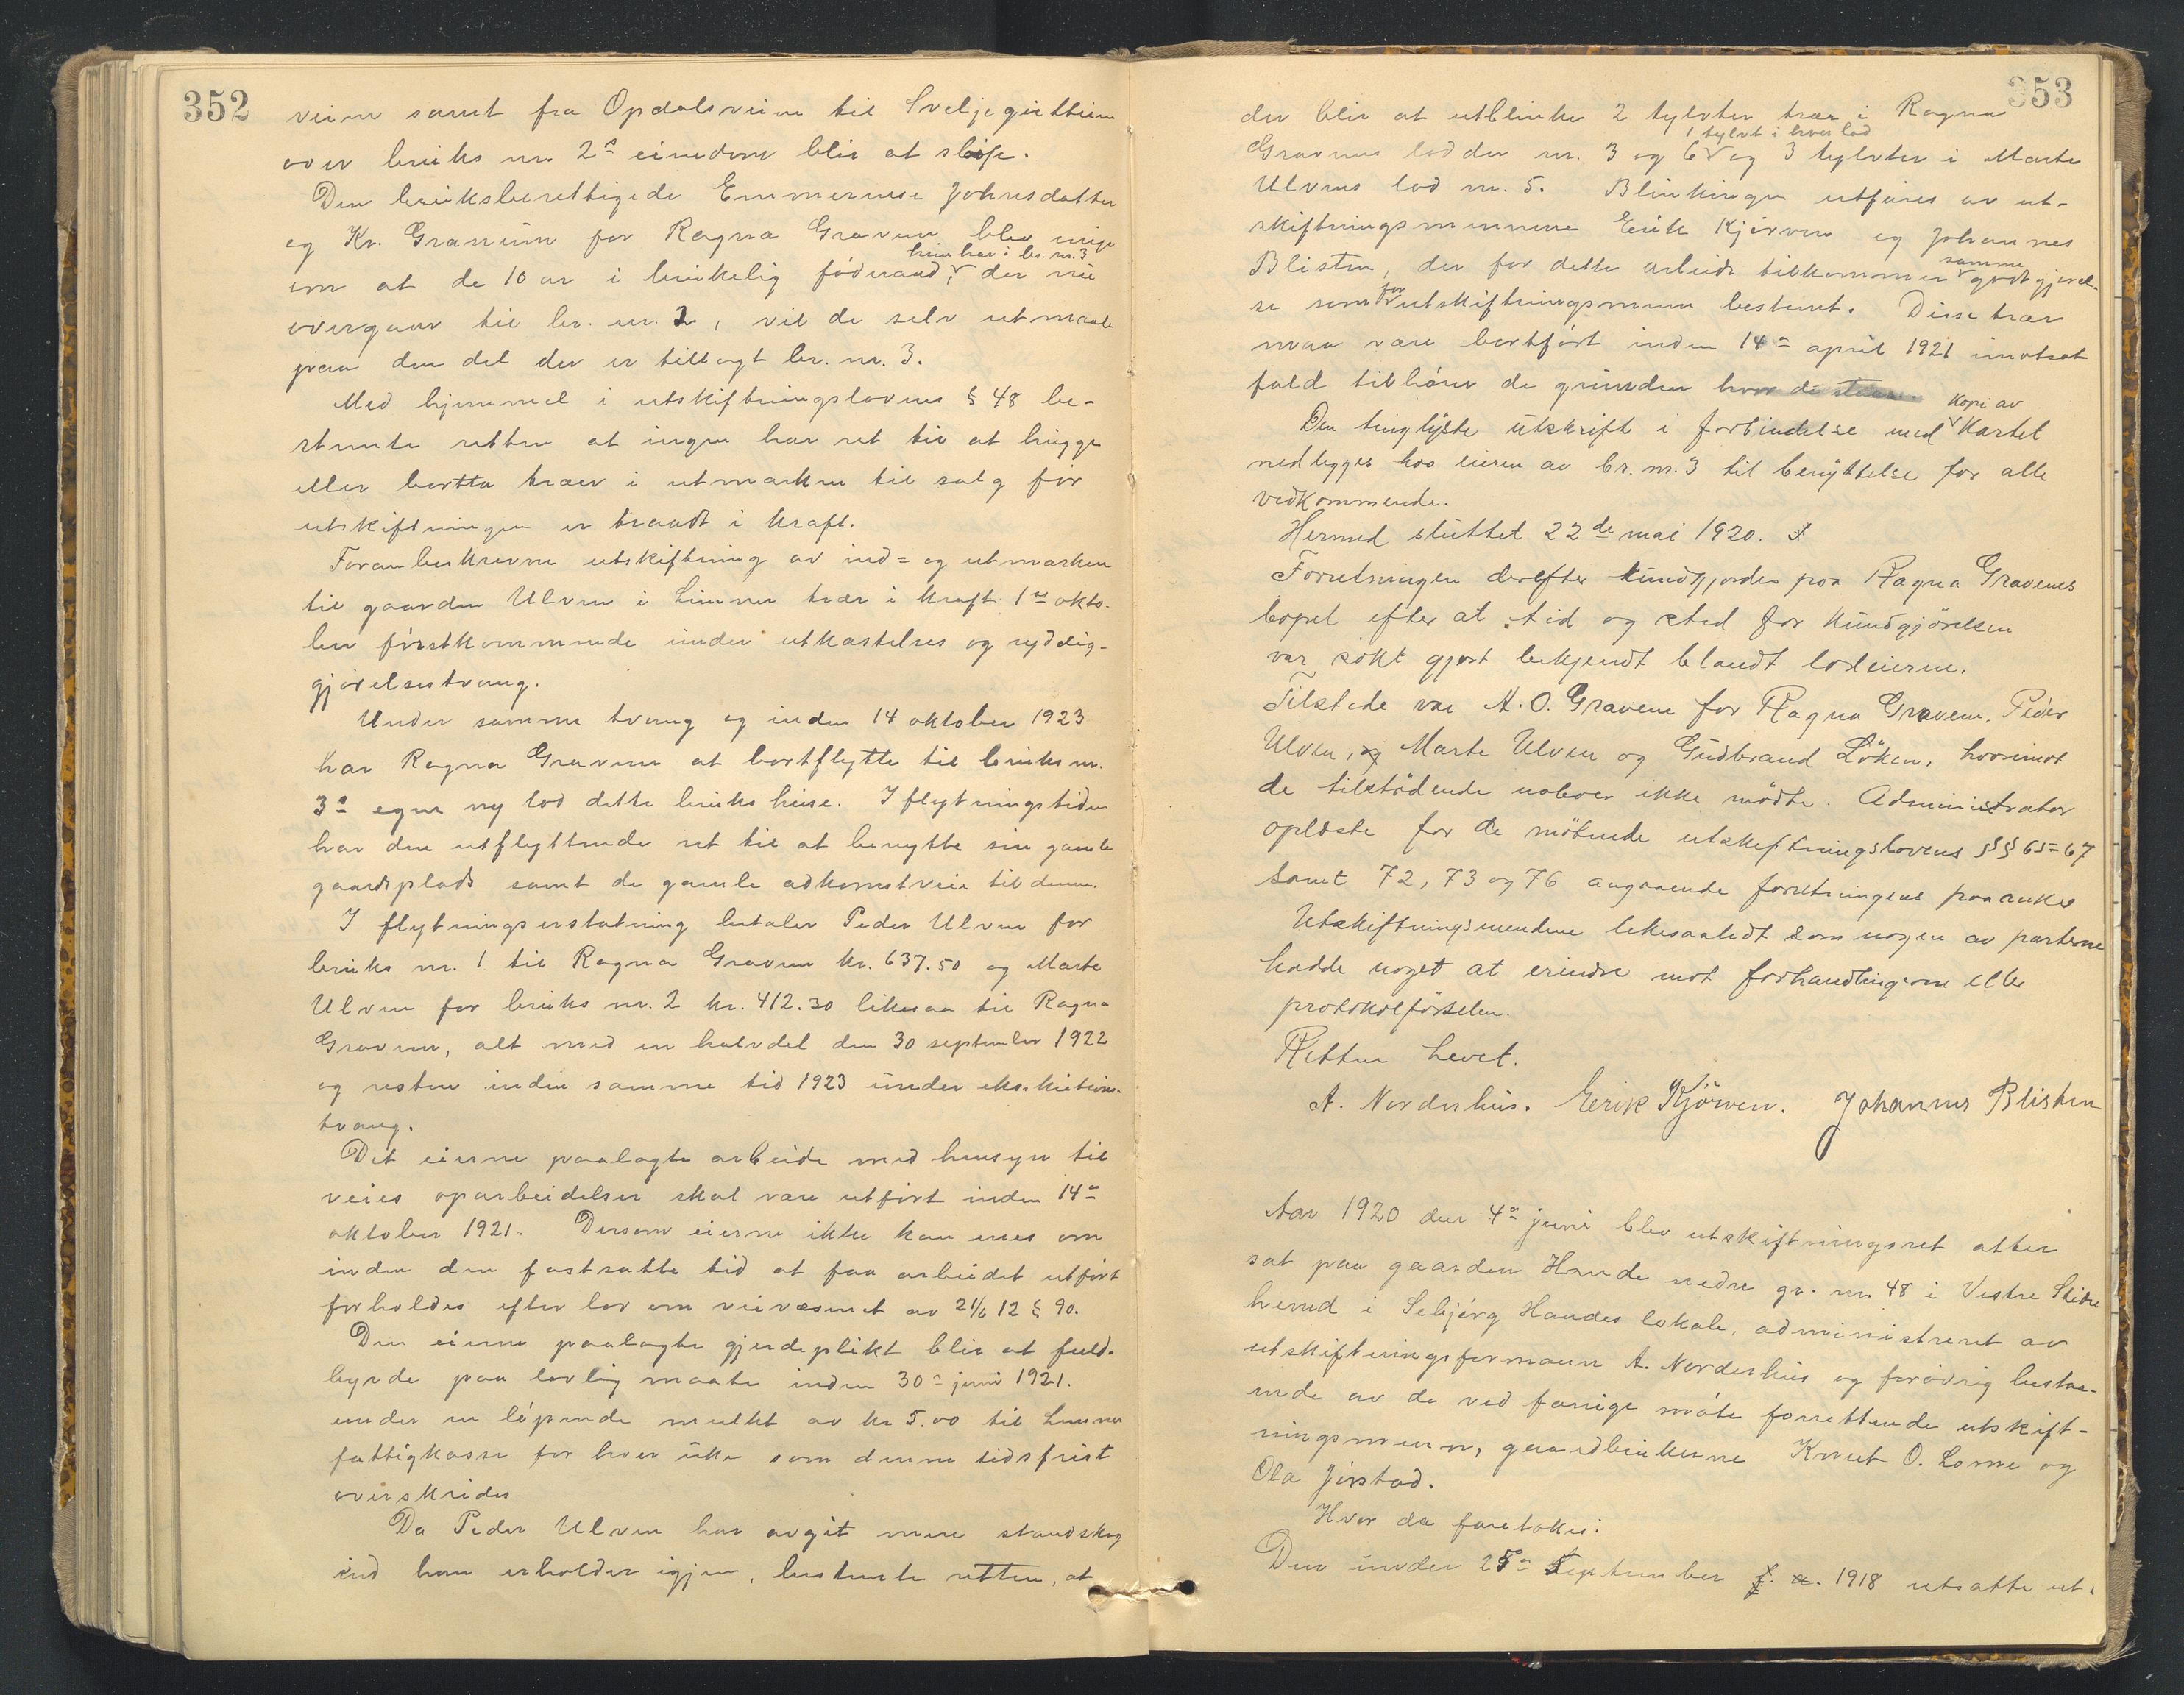 352
veien samt fra Opdalsveien til Sveljegutteien
over bruks nr. 2s eiendom blir at sløife.
Den bruksberettigede Emmerense Johnsdatter
og Kr. Granum for Ragna Gravem blev enige
hun har i br. nr. 3
om at de 10 ar i brukelig föderaad, der nu
overgaar til br. nr. 2, vil de selv utmaale
paa den del der er tillagt br. nr. 3.
Med hjemmel i utskiftningslovens § 48 be-
stemte retten at ingen har ret til at hugge
eller bortta trær i utmarken til salg før
utskiftningen er traadt i kraft.
Foranbeskrevne utskiftning av ind= og utmarken
til gaarden Ulven i Lunner trær i kraft 1ste okto-
ber førstkommende under utkastelses og ryddig-
gjørelsestvang.
Under samme tvang og inden 14 oktober 1923
har Ragna Gravem at bortflytte til bruks nr.
3s egen ny lod dette bruks huse. I flytningstiden
har den utflyttende ret til at benytte sin gamle
gaardsplads samt de gamle adkomstveie til denne.
I flytningserstatning betaler Peder Ulven for
bruks nr. 1 til Ragna Gravem kr. 637.50 og Marte
Ulven for bruks nr. 2 kr. 412.30 likesaa til Ragna
Gravem, alt med en halvdel den 30 september 1922
og resten inden samme tid 1923 under eksekutions-
tvang.
Det eierne paalagte arbeide med hensyn til
veies oparbeidelser skal være utført inden 14de
oktober 1921. Dersom eierne ikke kan enes om
inden den fastsatte tid at faa arbeidet utført
forholdes efter lov om veivæsenet av 21/6 12 § 90.
Den eierne paalagte gjerdeplikt blir at fuld-
byrde paa lovlig maate inden 30te juni 1921.
under en løpende mulkt av kr 5.00 til Lunner
fattigkasse for hver uke som denne tidsfrist
overskrides
Da Peder Ulven har avgit mere standskog
end han erholder igjen, bestemte retten, at
353
der blir at utblinke 2 tylvter trær i Ragna
1 tylvt i hver lod
Gravems lodder nr. 3 og 6 og 3 tylvter i Marte
Ulvens lod nr. 5. Blinkingen utføres av ut-
skiftningsmennene Erik Kjørven og Johannes
samme
Blisten, der for dette arbeide tilkommer godtgjørel-
for
se som utskiftningsmenn bestemt. Disse trær
maa være bortført inden 14de april 1921 imotsat
fald tilhører de grunden hvor de staar.
Kopi av
Den tinglyste utskrift i forbindelse med Kartet
nedlegges hos eieren av br. nr. 3 til benyttelse for alle
vedkommende.
Hermed sluttet 22de mai 1920.
Forretningen derefter kundgjordes paa Ragna Gravems
bopel efter at tid og sted for kundgjörelsen
var sökt gjort bekjendt blandt lodeierne.
Tilstede var A. O. Gravem for Ragna Gravem, Peder
Ulven, og Marte Ulven og Gudbrand Löken, hvorimot
de tilstödende naboer ikke mödte. Administrator
oplæste for de mötende utskiftningslovens §§§ 65=67
samt 72, 73 og 76 angaaende forretningens paaanke
Utskiftningsmendene likesaalidt som nogen av parterne
hadde noget at erindre mot forhandlingerne eller
protokolførselen.
Retten hevet.
A. Norderhus. Erik Kjörven. Johannes Blisten
Aar 1920 den 4de juni blev utskiftningsret atter
sat paa gaarden Hande nedre gr. nr. 48 i Vestre Slidre
herred i Sebjørg Handes lokale, administreret av
utskiftningsformann A. Norderhus og forøvrig bestaa-
ende av de ved forrige møte forrettende utskift-
ningsmenn, gaardbrukerne Knut O. Lome og
Ola Jørstad.
Hvor da foretokes:
Den under 25de September f. a. 1918 utsatte ut-